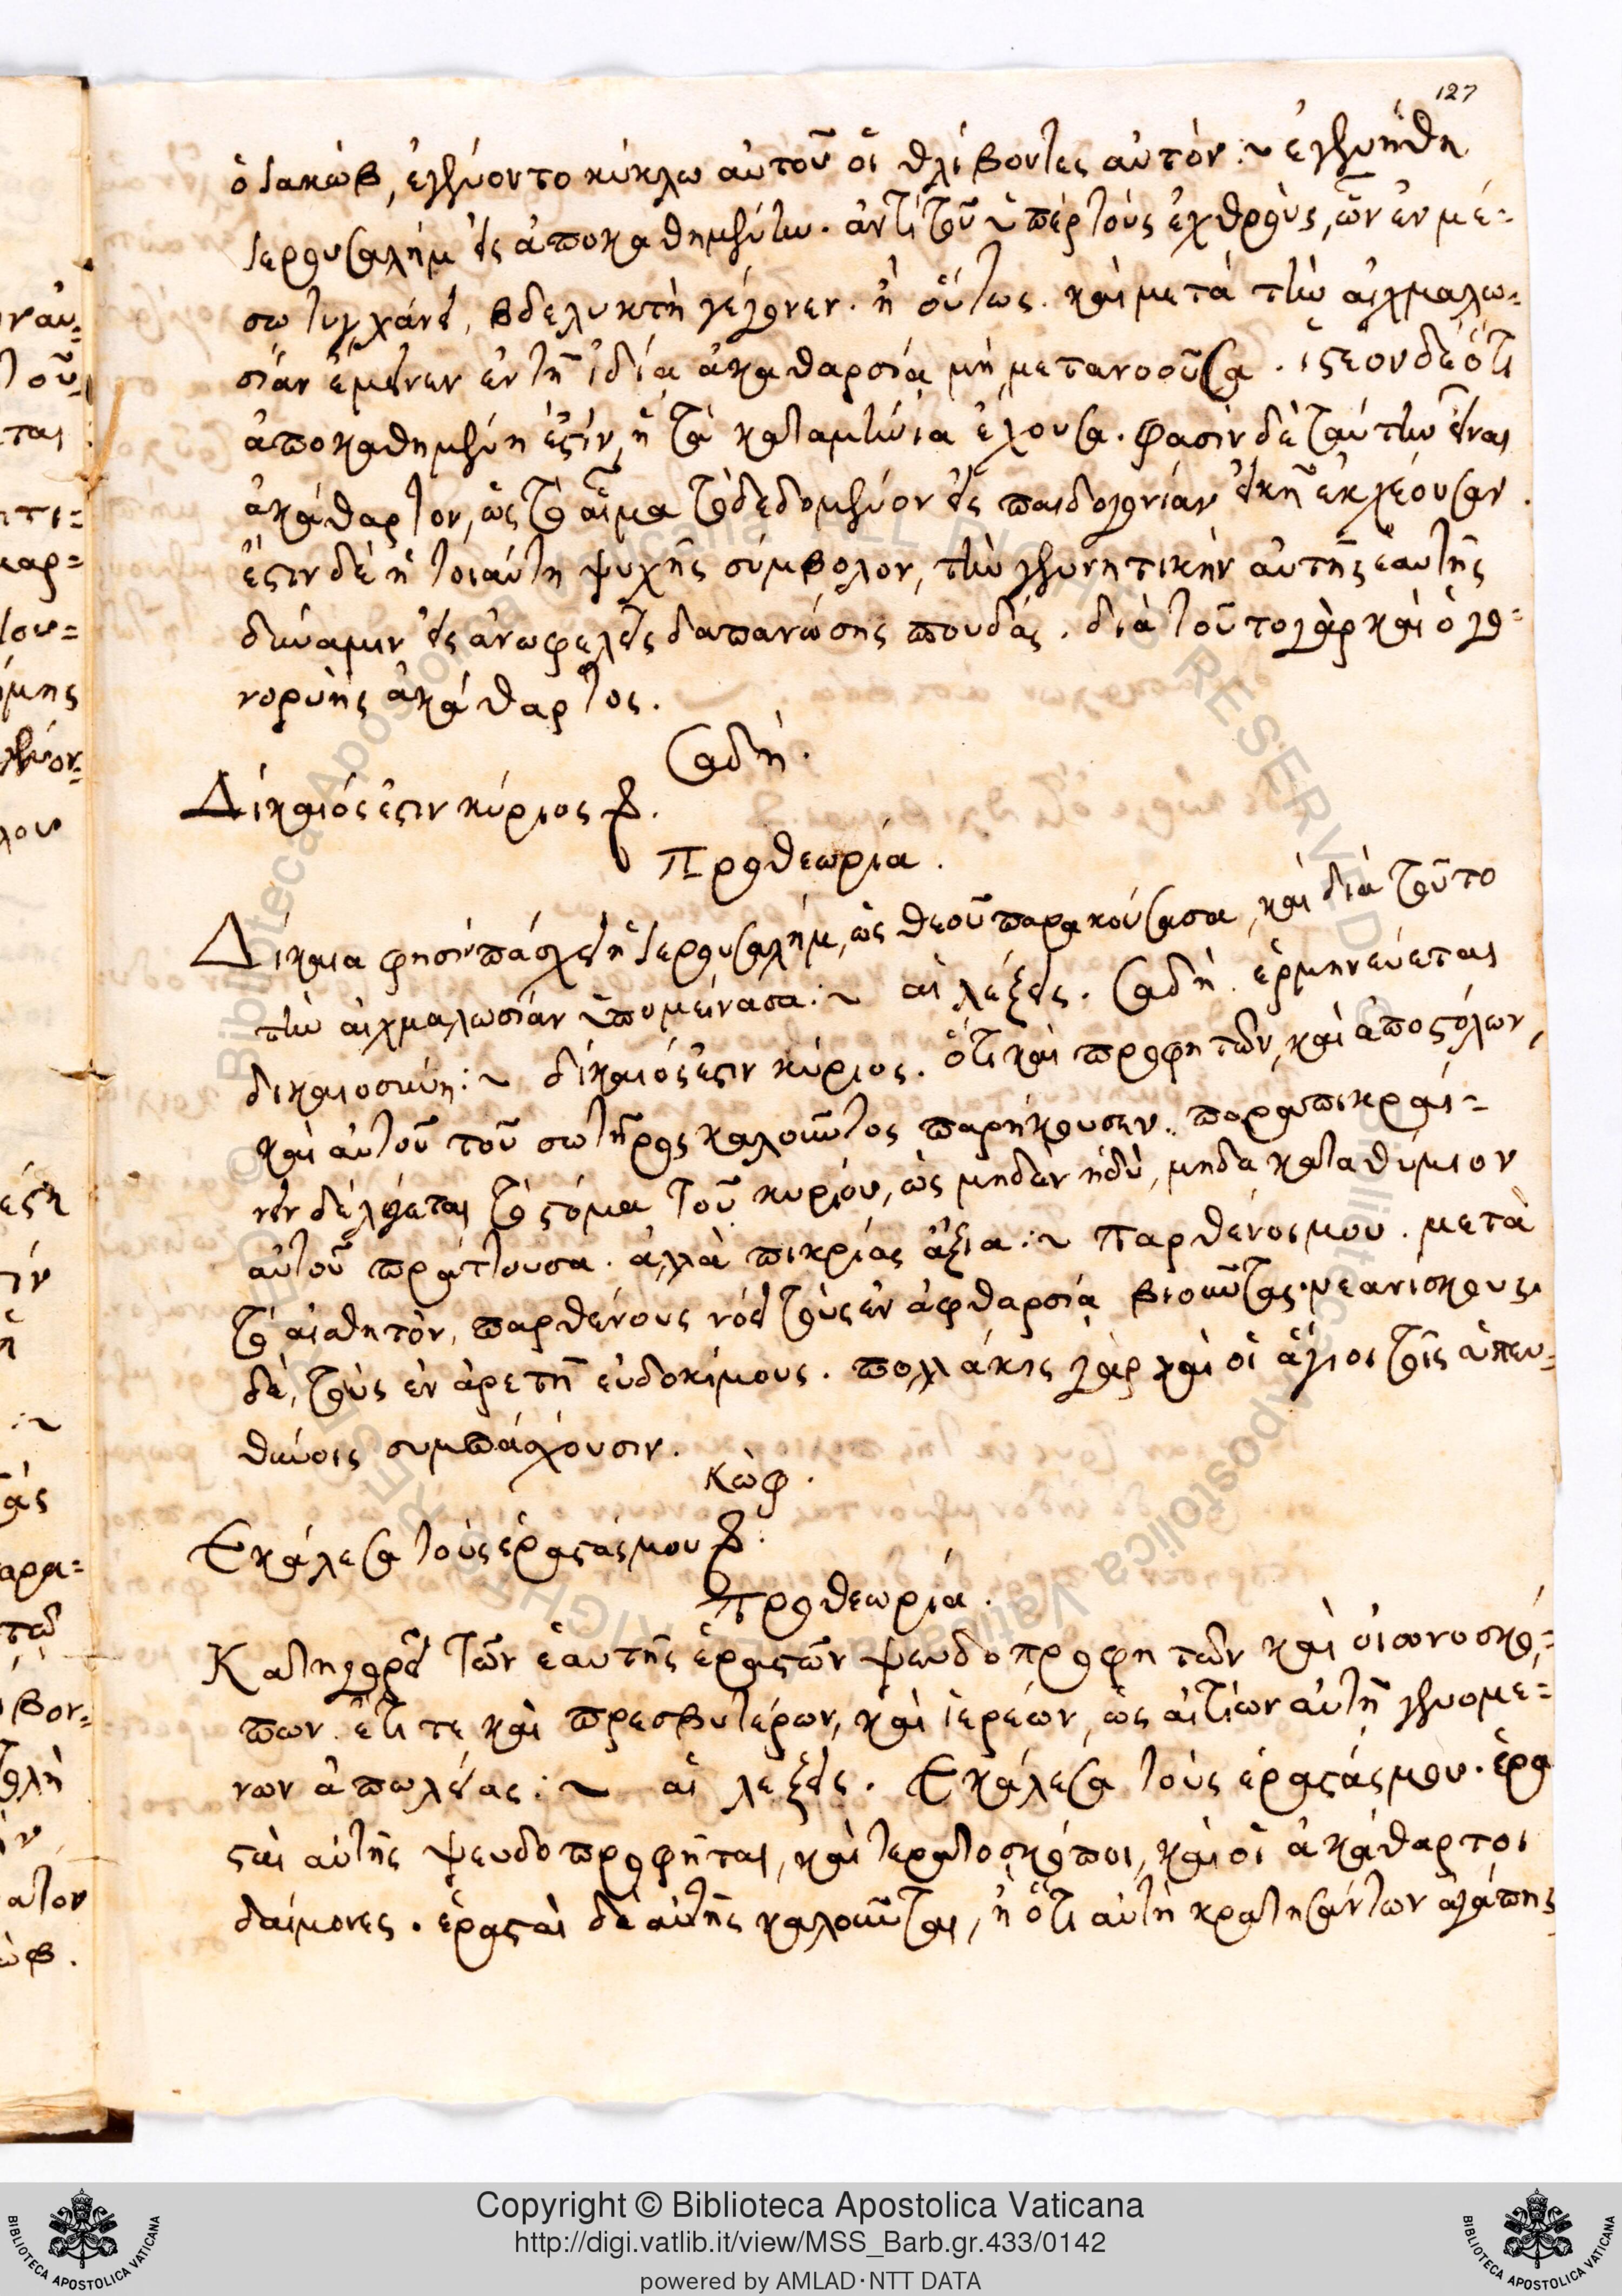 127
ὁ Ἰακώβ, ἐγένοντο κύκλω αὐτοῦ οἱ θλίβοντες αὐτόν :~ ἐγενήθη
Ἱερουσαλήμ εἰς ἀποκαθημένην. ἀντὶ τοῦ ὑπὲρ τοὺς ἐχθροὺς, ὧν ἐν μέ=
σω τυγχάνει, βδελυκτὴ γέγονεν. ἢ οὕτως. καὶ μετὰ τὴν αἰχμαλω=
σίαν ἔμεινεν ἐν τῆ ἰδία ἀκαθαρσία μὴ μετανοοῦσα. ἰστέον δὲ ὅτι
ἀποκαθημένη ἐστὶν, ἡ τὰ καταμήνια ἔχουσα. φασὶν δὲ ταύτην εἶναι
ἀκάθαρτον, ὡς τὸ αἷμα τὸ δεδομένον εἰς παιδογονίαν εἰκῆ ἐκχέουσαν.
ἔστιν δὲ ἡ τοιαύτη ψυχῆς σύμβολον, τὴν γεννητικὴν αὐτῆς ἑαυτῆς
δύναμιν εἰς ἀνωφελεῖς δαπανώσης σπουδάς. διὰ τοῦτο γὰρ καὶ ὁ γο=
νορυὴς ἀκάθαρτος.
Σαδή.
Δίκαιός ἐστιν κύριος
Προθεωρία.
Δίκαια φησὶν πάσχει ἡ Ἱερουσαλήμ, ὡς θεοῦ παρακούσασα, καὶ διὰ τοῦτο
τὴν αἰχμαλωσίαν ὑπομείνασα :~ αἱ λέξεις. Σαδὴ ἑρμηνεύεται
δικαιοσύνη :~ δίκαιός ἐστιν κύριος. ὅτι καὶ προφητῶν, καὶ ἀποστόλων,
καὶ αὐτοῦ τοῦ σωτῆρος καλοῦντος παρήκουσεν. παραπικραί=
νειν δὲ λέγεται τὸ στόμα τοῦ κυρίου, ὡς μηδὲν ἡδὺ, μηδὲ καταθύμιον
αὐτοῦ πράττουσα. ἀλλὰ πικρίας ἄξια :~ Παρθένοι μου. μετὰ
τὸ αἰσθητὸν, παρθένους νόει τοὺς ἐν ἀφθαρσία βιοῦντας. νεανίσκους
δὲ, τοὺς ἐν ἀρετῆ εὐδοκίμους. πολλάκις γὰρ καὶ οἱ ἅγιοι τοῖς ὑπευ=
θύνοις συμπάσχουσιν.
Κώφ.
Ἐκάλεσα τοὺς ἐραστάς μου
Προθεωρία.
Κατηγορεῖ τῶν ἑαυτῆς ἐραστῶν ψευδοπροφητῶν καὶ οἰωνοσκό=
πων. ἔτι τε καὶ πρεσβυτέρων, καὶ ἱερέων, ὡς αἰτίων αὐτῆ γενομέ=
νων ἀπωλείας :~ αἱ λέξεις. Ἐκάλεσα τοὺς ἐραστάς μου. ἐρα
σταὶ αὐτῆς ψευδοπροφῆται, καὶ τερατοσκόποι, καὶ οἱ ἀκάθαρτοι
δαίμονες. ἐρασταὶ δὲ αὐτῆς καλοῦνται, ἢ ὅτι αὐτὴ κρατησάντων ἀγάπης
Copyright © Biblioteca Apostolica Vaticana
http://digi.vatlib.it/view/MSS_Barb.gr.433/0142
powered by AMLAD·NTT DATA